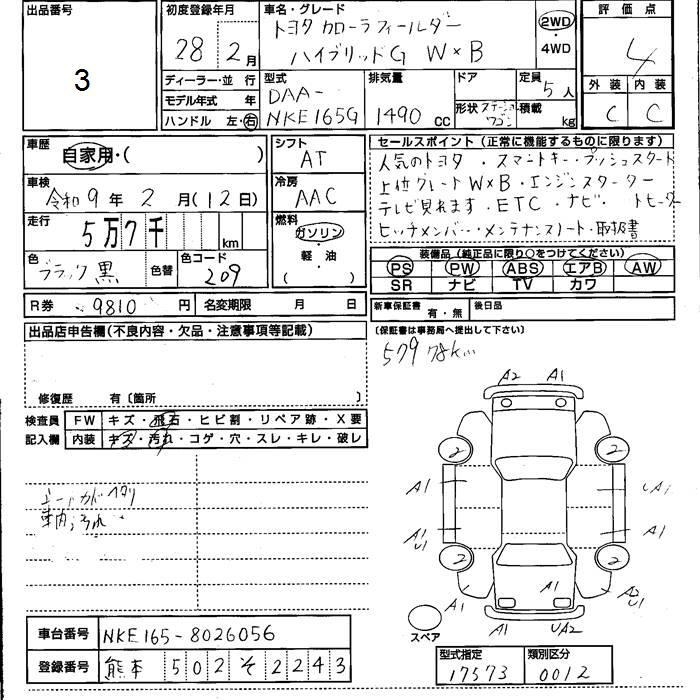 出品番号
3
初度登録年月
28年 2月
車名・グレード
トヨタ カローラフィールダー
ハイブリッドG W×B
2WD
・
4WD
評価点
4
外装 内装
C C
ディーラー・並行
モデル年式 年
ハンドル 左・右
型式
DAA-
NKE165G
排気量
1490 cc
ドア
形状 ステーションワゴン
定員
5人
積載
kg
車歴
自家用・( )
車検
令和9年 2月(12日)
走行
5万7千 km
色
ブラック 黒
色替
色コード
209
シフト
AT
冷房
AAC
燃料
ガソリン
・
軽・油
( )
セールスポイント (正常に機能するものに限ります)
人気のトヨタ・スマートキー・プッシュスタート
上位グレードW×B・エンジンスターター
テレビ見れます・ETC・ナビ・ トヒーター
ヒッチメンバー・メンテナンスノート・取扱書
装備品 (純正品に限り○をつけてください)
PS PW ABS エアB AW
SR ナビ TV カワ
R券 9810 円
名変期限 月 日
新車保証書 有・無
後日品
(保証書は事務局へ提出して下さい)
579 78K
出品店申告欄 (不良内容・欠品・注意事項等記載)
修復歴 有〔箇所 〕
検査員
記入欄
FW キズ・飛石・ヒビ割・リペア跡・X要
内装 キズ・汚れ・コゲ・穴・スレ・キレ・破レ
シートカド ヘタリ
車内汚れ
A2 A1
2 2
A1 UA1
A1 U1 A1
2 2
A1 A1 A1 A2 U1
A1 UA2
スペア
車台番号 NKE165-8026056
登録番号 熊本 502 そ 2243
型式指定 類別区分
17573 0012